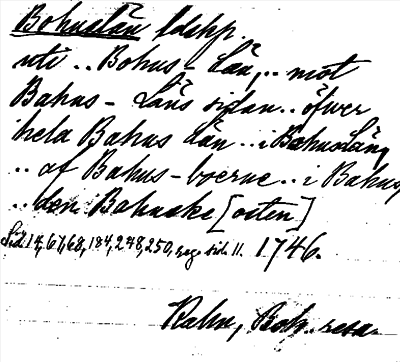 Bohuslän ldskp.
uti .. Bohus-Län, .. mot
Bahus-Läns sidan .. öfwer
hela Bahus Län .. i Bahuslän
.. af Bahus-boerne .. i Bahus,
.. den Bahuske [osten]
Sid. 14, 67, 68, 184, 248, 250, reg. sid. 11. 1746.
Kalm, Boh. resa